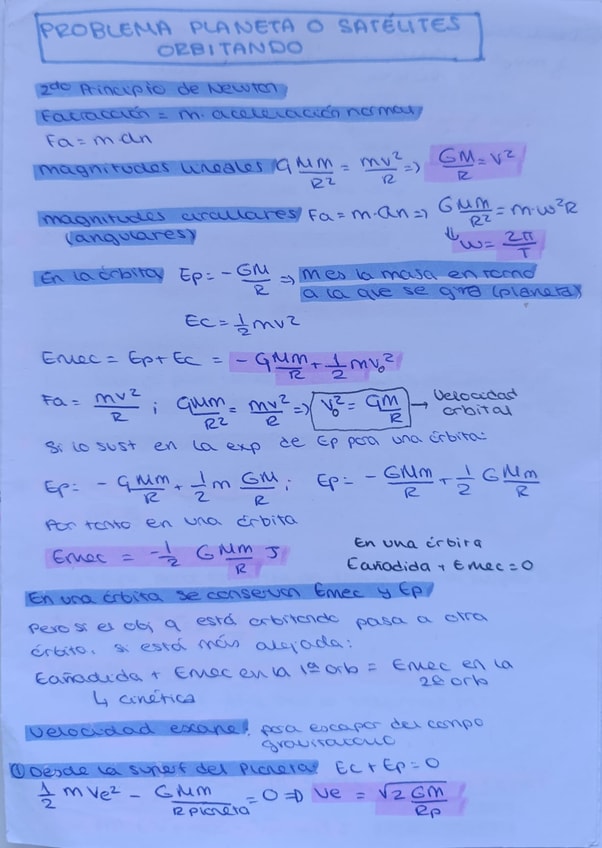 PROBLEMA PLANETA O SATÉLITES
ORBITANDO
2do Principio de Newton
Fatracción = m. aceleración normal
Fa = m.an
magnitudes lineales G Mm/R² = mv²/R => GM/R = V²
magnitudes circulares Fa = m.an => G Mm/R² = m.w²R
(angulares) ⇓ w = 2π/T
En la órbita Ep = - GM/R => M es la masa en torno
a la que se gira (planeta)
Ec = 1/2 mv²
Emec = Ep + Ec = - G Mm/R + 1/2 mv₀²
Fa = mv²/R ; G Mm/R² = mv²/R => V₀² = G M/R → Velocidad
orbital
Si lo sust en la exp de Ep para una órbita:
Ep = - G Mm/R + 1/2 m GM/R ; Ep = - G Mm/R + 1/2 G Mm/R
Por tanto en una órbita
Emec = -1/2 G Mm/R J
En una órbita
Eañadida + Emec = 0
En una órbita se conservan Emec y Ep
Pero si el obj q está orbitando pasa a otra
órbita, si está más alejada:
Eañadida + Emec en la 1ª orb = Emec en la
2ª orb
↳ cinética
Velocidad escape: para escapar del campo
gravitatorio
① Desde la superf del planeta Ec + Ep = 0
1/2 m Ve² - G Mm/R planeta = 0 => Ve = √2 GM/Rp